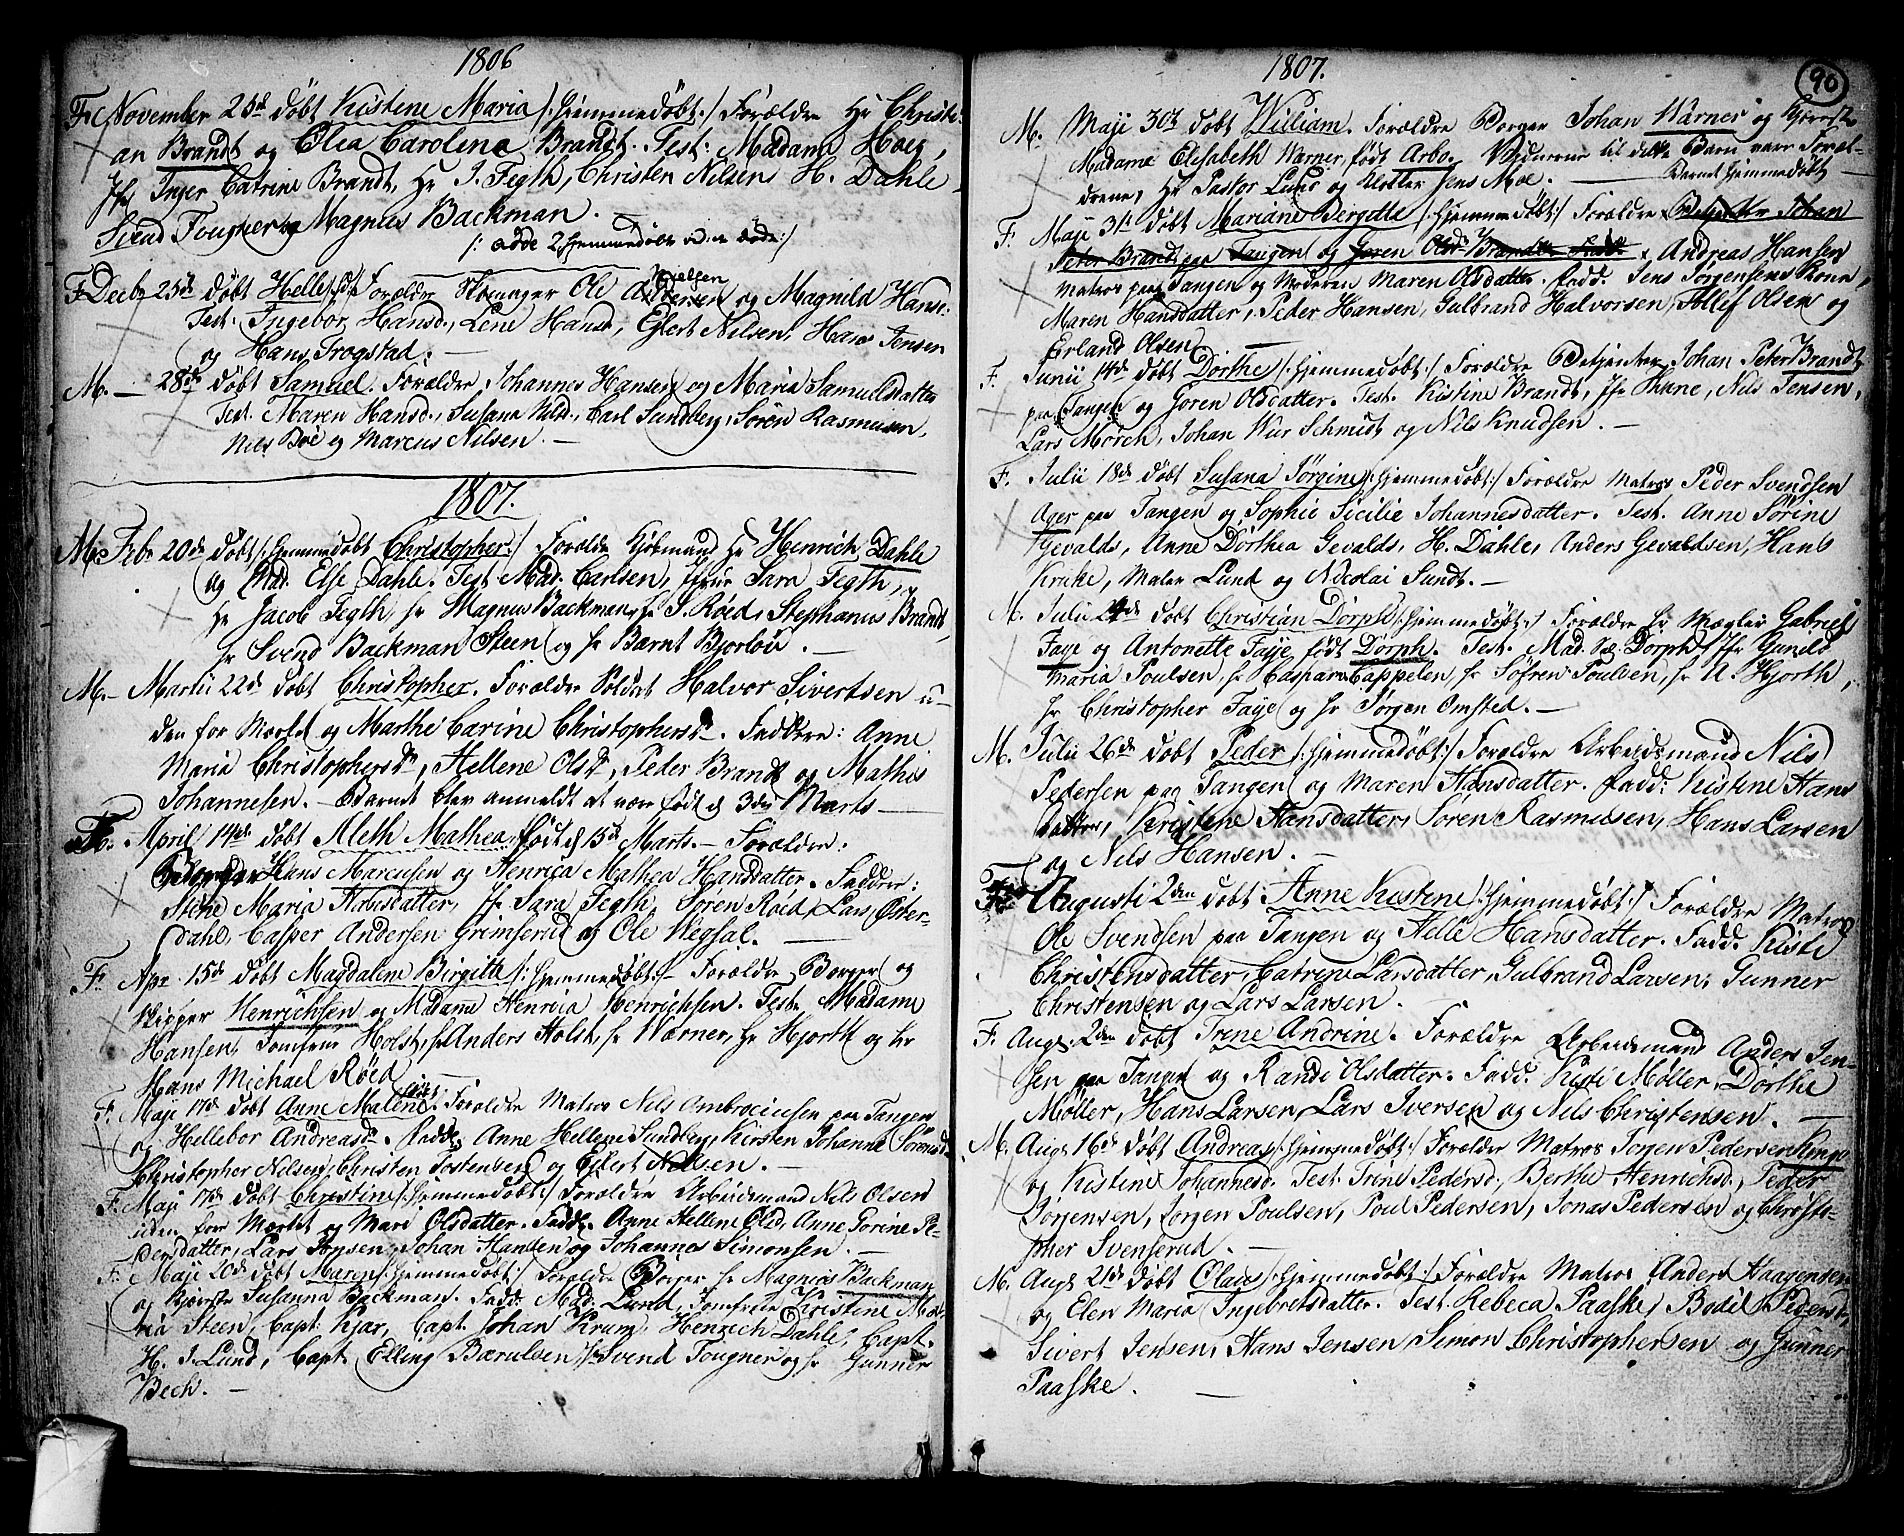 1806
F. November 23de døbt Kistene Maria /: hjemmedøbt :/ Forældre Hr Christi-
an Brandt og Olea Carolina Brandt. Test: Madame Hoeg,
Jfr Inger Catrine Brandt, Hr J. Fegth, Christen Nilsen, H. Dahle
Svend Fougner og Magnus Backman.
F. Decbr 25de døbt Helle Forældre Ole Nielsen og Magnild Hansd:
Test: Ingebor Hansd., Lene Hansd, Eilert Nilsen, Hans Jensen
og Hans Trogstad. —
M. — 28de døbt Samuel. Forældre Johannes Hansen og Maria Samuelsdatter
Test. Maren Hansd., Susana Nilsd., Carl Sundberg, Søren Rasmusen,
Nils Boe og Marcus Nilsen. —
1807.
M. Febr 20de døbt /: hjemmedøbt Christopher :/ Forældre Kjøbmand Hr Henrich Dahle
og Mad. Else Dahle. Test Mad. Carlsen, Jfrue Sara Fegth,
Hr Jacob Fegth, hr Magnus Backman, hr S. Røed, Stephanus Brandt,
hr Svend Backman Steen og hr Barnt Bjorlou. —
M. — Martii 22de døbt Christopher. Forældre Soldat Halvor Sivertsen u-
den for Mærket og Marthe Carine Christophersd. Faddere: Anne
Maria Christophersdr, Hellene Olsd, Peder Brandt og Mathis
Johannesen. — Barnet blev anmeldt at være født d 3die Marts —
F. April 14de døbt Aleth Mathea, født d 15de Marts. — Forældre:
Hans Marcusen og Henrica Mathea Hansdatter. Faddrer:
Stine Maria Hansdatter, Jfr Sara Fegth, Søren Røed, Lars Øster-
dahl, Casper Andersen Grimserud og Ole Wegsal. —
F. Apr 15de døbt Magdalene Birgitte /: hjemmedøbt :/ Forældre Borger og
Skipper Henrichsen og Madame Henrica Henrichsen. Test: Madame
Hansen, Jomfrue Holst, hr Anders Holst, hr Warner, Hr Hjorth og hr
Hans Michael Røed.
F. Maji 17de døbt Anne Malene. Forældre Matros Nils Ambrociusen paa Tangen
og Hellebor Andreasdr. Fadd. Anne Hellene Sundberg, Kirsten Johanne Sørensd.
Christopher Nilsen, Christen Tostensen og Eilert Nilsen. —
F. Maji 17de døbt Christine /: hjemmedøbt :/ Forældre Arbeidsmand Nils Olsen
uden for Mærket og Mari Olsdatter. Fadd. Anne Hellene Olsd, Anne Torine Pe-
dersdatter, Lars Jonsen, Johan Hansen og Johannes Simonsen. —
F. Maji 20de døbt Maren /: hjemmedøbt :/ Forældre Borger hr Magnus Backman
og Kjæreste Susanna Backman. Fadd. Mad. Lund, Jomfrue Kristine Ma-
ria Steen, Capt. Kjær, Capt. Johan Krum, Henrich Dahle, Capt.
H. J. Lund, Capt. Elling Bærulsen, hr Svend Fougner og hr Gunner
Bech. —
1807.
90
M. Maji 30te døbt William. Forældre Borger Johan Warner og Kjæreste
Madame Elisabeth Warner, født Arbo. Vidnerne til dette Barn vare Foræl-
drene, Hr Pastor Lund og Klokker Jens Moe. — Barnet hjemmedøbt
F. Maji 31te døbt Mariane Bergette /: hjemmedøbt :/ Forældre Betjenter Johan
Peter Brandt paa Tangen og Goren Olsdr Andreas Hansen
Matros paa Tangen og Moderen Maren Olsdatter. Fadd. Jens Jørgensens Kone,
Maren Hansdatter, Peder Hansen, Gulbrand Halvorsen, Tollef Olsen og
Erland Olsen —
F. Junii 14de døbt Dorthe /: hjemmedøbt :/ Forældre Betjenter Johan Peter Brandt
paa Tangen og Goren Olsdatter. Test. Kistine Brandt, Jfr Thune, Nils Jensen,
Lars Mørch, Johan Wur Schmidt og Nils Knudsen. —
F. Julii 18de døbt Susana Jørgine /: hjemmedøbt :/ Forældre Matros Peder Svendsen
Ager paa Tangen og Sophie Sicilie Johannesdatter. Test. Anne Sørine
Gevalds, Anne Dorthea Gevalds, H. Dahle, Anders Gevaldsen, Hans
Kruke, Maler Lund og Nicolai Sundt. —
M. Julii 24de døbt Christian Dorph /: hjemmedøbt :/ Forældre hr Mægler Gabriel
Faye og Antonette Faye født Dorph. Test. Mad. Dorph, Jfr Gunild
Maria Poulsen, hr Haspara Cappelen, hr Søfren Poulsen, hr A. Hjorth,
hr Christopher Faye og hr Jørgen Omsted. —
M. Julii 26de døbt Peder /: hjemmedøbt :/ Forældre Arbeidsmand Nils
Pedersen paa Tangen og Maren Hansdatter. Fadd: Kistine Hans
datter, Kirstene Hansdatter, Søren Rasmusen, Hans Larsen
og Nils Hansen. —
F. Augusti 2den døbt Anne Kistene /: hjemmedøbt :/ Forældre Matros
Ole Svendsen paa Tangen og Helle Hansdatter. Fadd. Kisti
Christensdatter, Catrine Larsdatter, Gulbrand Larsen, Gunner
Christensen og Lars Larsen.
F. Augs. 2den døbt Trene Andrine. Forældre Arbeidsmand Anders Jen-
sen paa Tangen og Randi Olsdatter. Fadd. Kisti Møller, Dorthe
Møller, Hans Larsen, Lars Iversen og Nils Christensen. —
M. Augs 16de døbt Andreas /: hjemmedøbt :/ Forældre Matros Jorgen Pedersen Kinge
og Kistine Johannesd. Test. Trine Pedersd., Berthe Henrichsd., Peder
Jørgensen, Jørgen Poulsen, Poul Pedersen, Jonas Pedersen og Christo-
pher Svenserud. —
M. Augs 21de døbt Claus /: hjemmedøbt :/ Forældre Matros Anders Haagensen
og Elen Maria Ingebretsdatter. Test. Rebeca Paaske, Bodil Pedersd.,
Sivert Jensen, Hans Jensen, Simon Christophersen og Gunner
Paaske. —